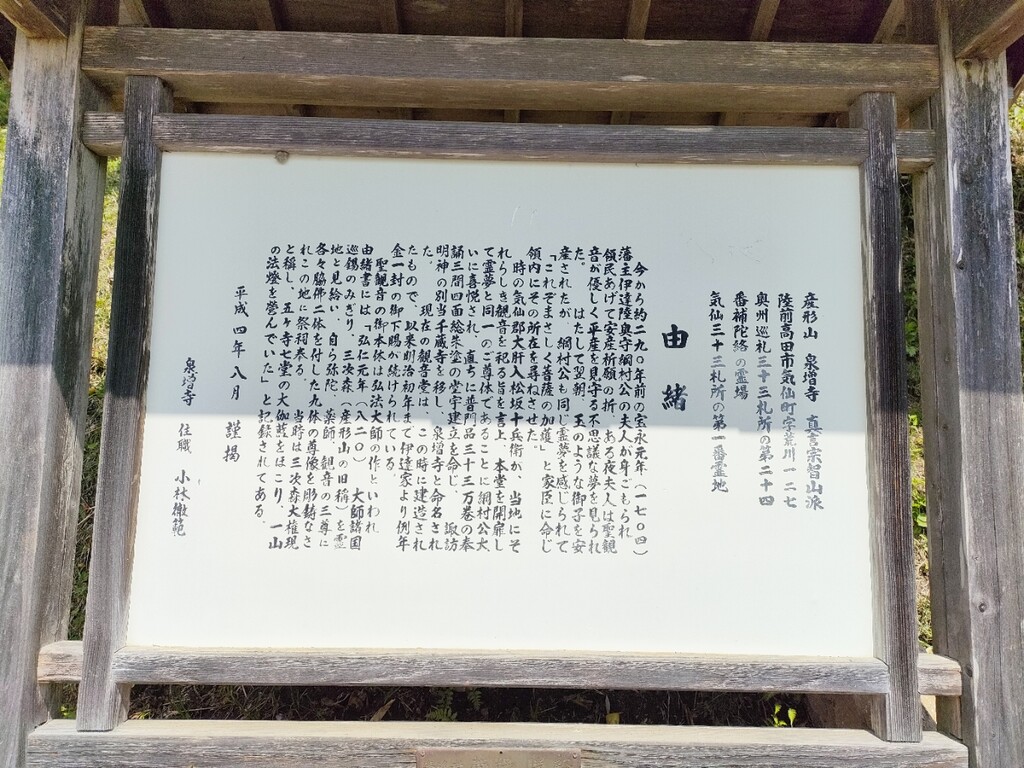 産形山 泉増寺 真言宗智山派
陸前高田市気仙町字荒川一二七
奥州巡礼三十三札所の第二十四
番補陀絡の霊場
気仙三十三札所の第一番霊地
由緒
今から約二九〇年前の宝永元年（一七〇四）
藩主伊達陸奥守綱村公の夫人が身ごもられ
領民あげて安産祈願の折、ある夜夫人は聖観
音が優しく平産を見守る不思議な夢を見られ
た。 はたして翌朝、玉のような御子を安
産されたが、綱村公も同じ霊夢を感じられて
「これぞまさしく菩薩の加護」と家臣に命じ
領内にその所在を尋ねさせた。
時の気仙郡大肝入松坂十兵衛が、当地にそ
れらしき観音を祀る旨を言上、本堂を開扉し
て霊夢と同一のご尊体であることに綱村公大
いに喜悦され、直ちに普門品三十三万巻の奉
誦三間四面総朱塗の堂宇建立を命じ、諏訪
明神の別当千蔵寺を移し、泉増寺と命名され
た。 現在の観音堂は、この時に建造され
たもので、以来明治初年まで伊達家より例年
金一封の御下賜が続けられている。
聖観音の御本体は弘法大師の作といわれ
由緒書には、「弘仁元年（八二〇） 大師諸国
巡錫のみぎり、三次森（産形山の旧称）を霊
地と見給い、自ら弥陀、薬師、観音の三尊に
各々脇佛二体を付した九体の尊像を彫鋳なさ
れこの地に祭祠奉る。 当時は三次森大権現
と称し、五ヶ寺七堂の大伽藍をほこり、一山
の法燈を営んでいた」と記録されてある。
平成四年八月 謹掲
泉増寺 住職 小林 範